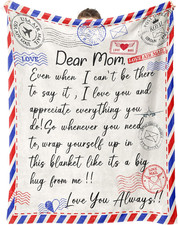 LOVE
LOVE AIR MAIL
Dear Mom,
Even when I can't be there
to say it, I love you and
appreciate everything you
do! So whenever you need
to, wrap yourself up in
this blanket like its a big
hug from me !!
Love You Always!!